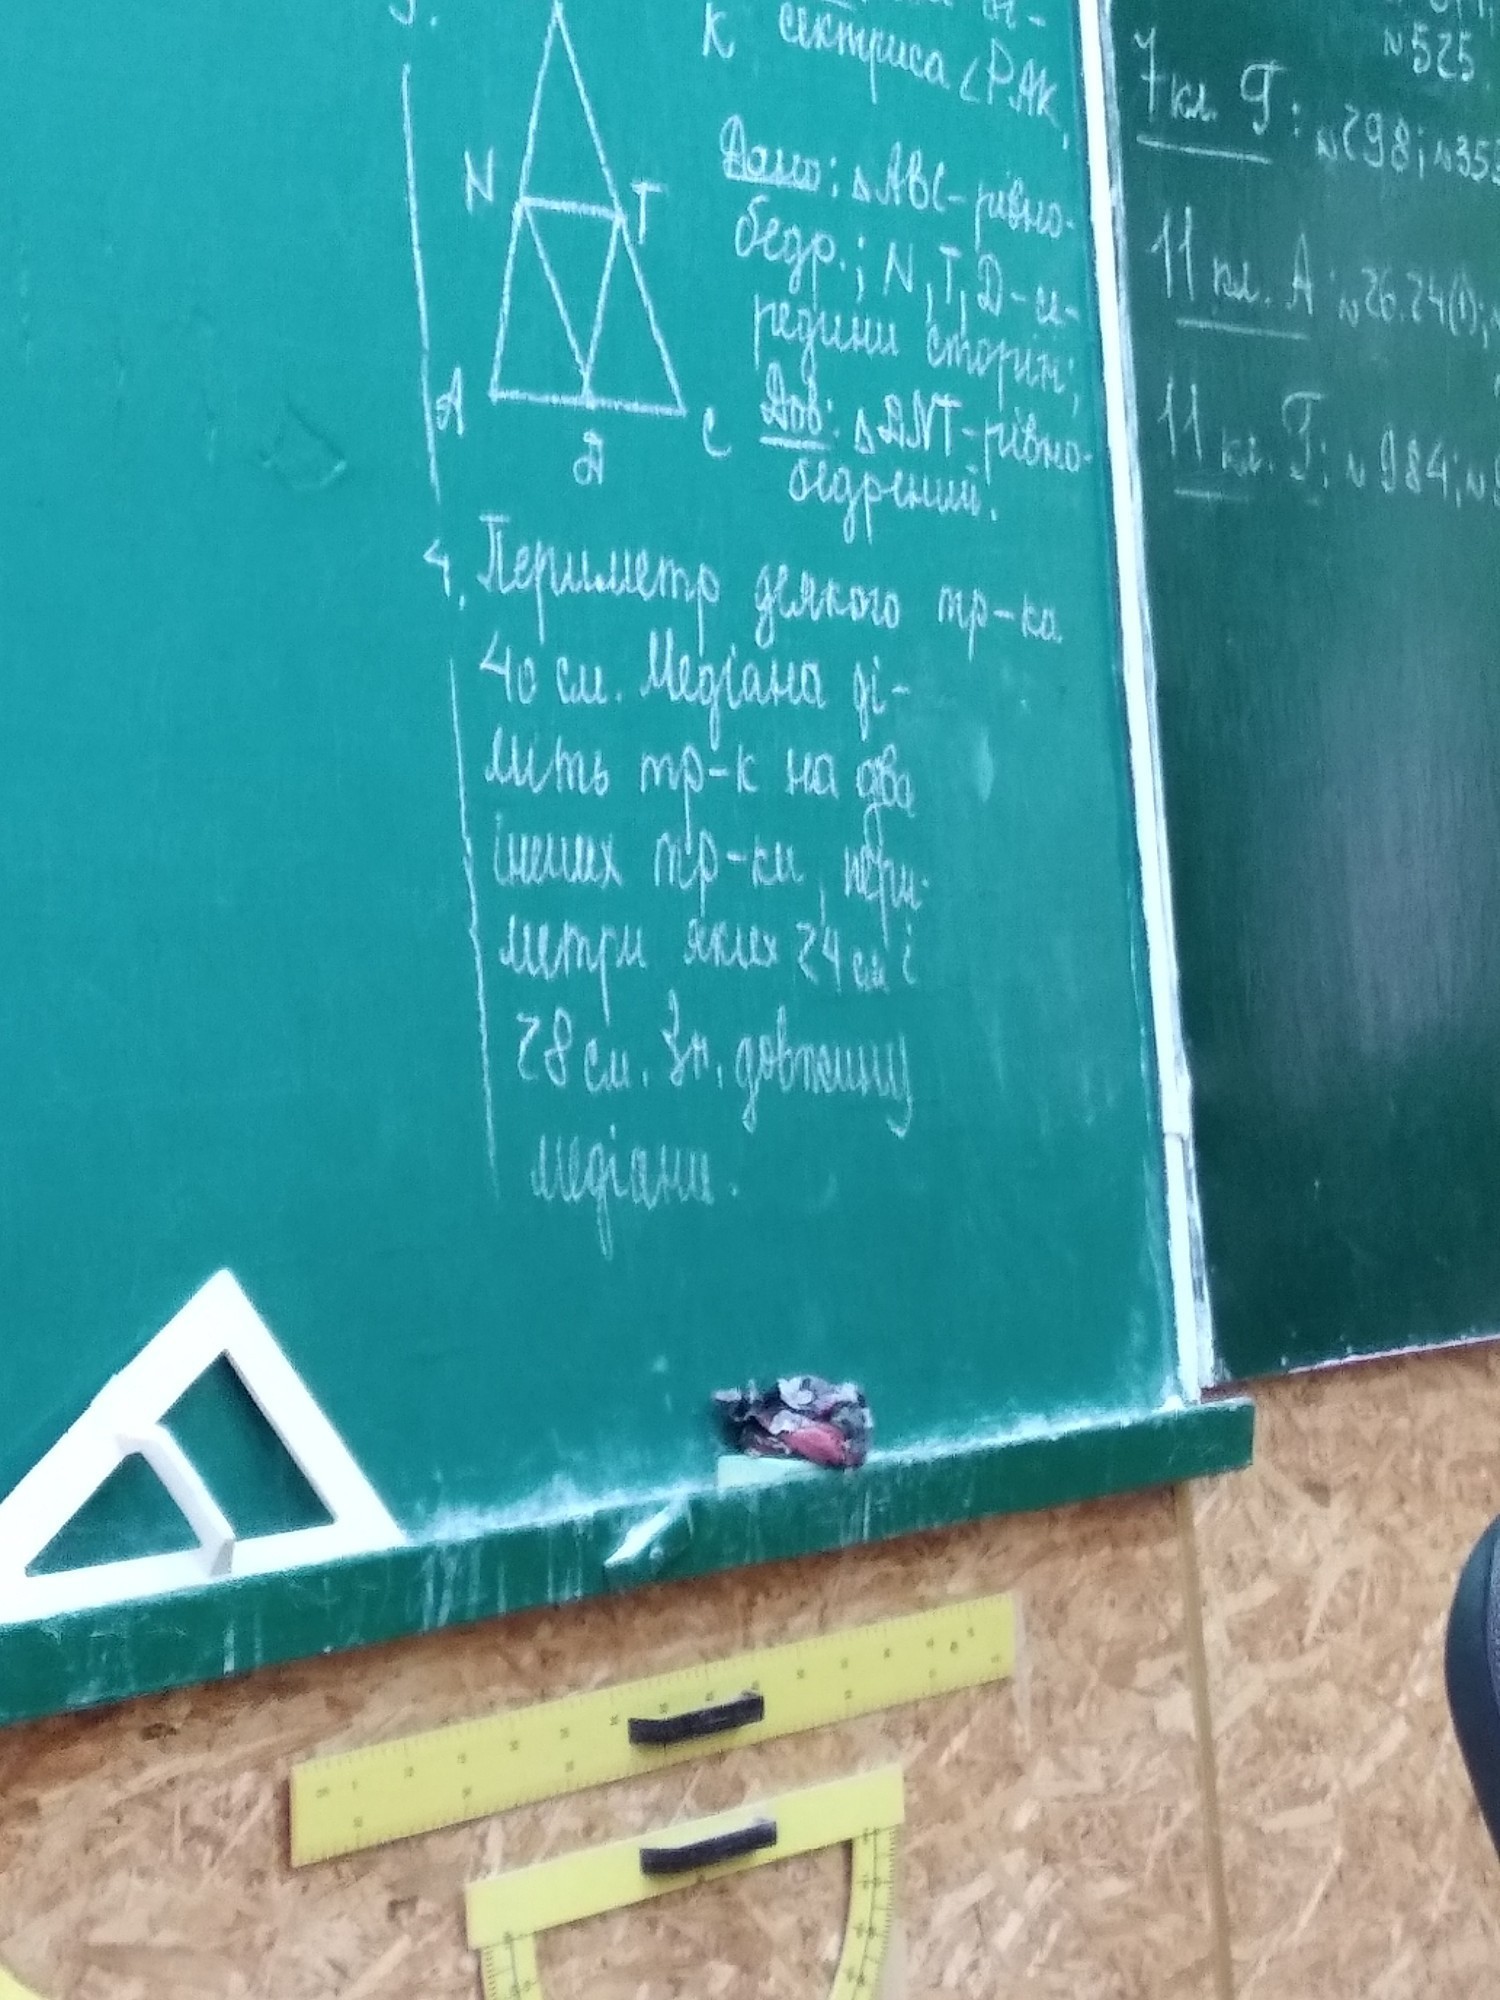 3.
N
T
A
D
C
K сектриса ∠PAK,
Дано: △ABC-рівно-
бедр.; N, T, D-се-
редини сторін;
Дов: △DNT-рівно-
бедрений.
4. Периметр деякого тр-ка
40 см. Медіана ді-
лить тр-к на два
інших тр-ки, пери-
метри яких 24 см і
28 см. Зн. довжину
медіани.
№525.
7 кл. Г: №298; №353
11 кл. А: №26.24(1);
11 кл. Г: №984; №9